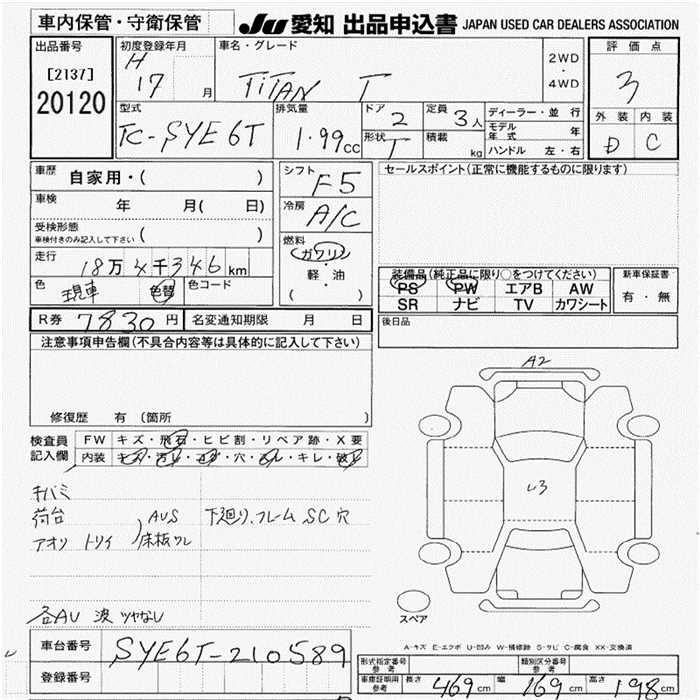 車内保管・守衛保管
JU 愛知 出品申込書 JAPAN USED CAR DEALERS ASSOCIATION
出品番号
[2137]
20120
初度登録年月
H 17 月
車名・グレード
TITAN T
2WD
・
4WD
評価点
3
外装 内装
D C
型式
TC-SYE6T
排気量
1.99cc
ドア 2
形状 T
定員 3人
積載 kg
ディーラー・並行
モデル年式 年
ハンドル 左・右
車歴 自家用・( )
車検 年 月( 日)
受検形態
車検付きのみ記入して下さい ( )
走行 18万4千346km
色 現車 色替 色コード
シフト F5
冷房 A/C
燃料
ガソリン
・
軽・油
( )
セールスポイント(正常に機能するものに限ります)
装備品(純正品に限り○をつけてください)
PS PW エアB AW
SR ナビ TV カワシート
新車保証書
有・無
R券 7830円 名変通知期限 月 日
後日品
注意事項申告欄(不具合内容等は具体的に記入して下さい)
修復歴 有 (箇所 )
検査員記入欄
FW キズ・飛石・ヒビ割・リペア跡・X要
内装 キズ・汚レ・コゲ・穴・ヌレ・キレ・破レ
キバミ
荷台 AUS 下廻り、フレーム SC穴
アオリ トリイ 床板ワレ
各AU 波 ツヤなし
A2
U3
スペア
A-キズ E-エクボ U-凹み W-補修跡 S-サビ C-腐食 XX-交換済
車台番号 SYE6T-210589
登録番号
形式指定番号 参考
類別区分番号 参考
車庫証明用 参考 長さ 469cm 幅 169cm 高さ 198cm